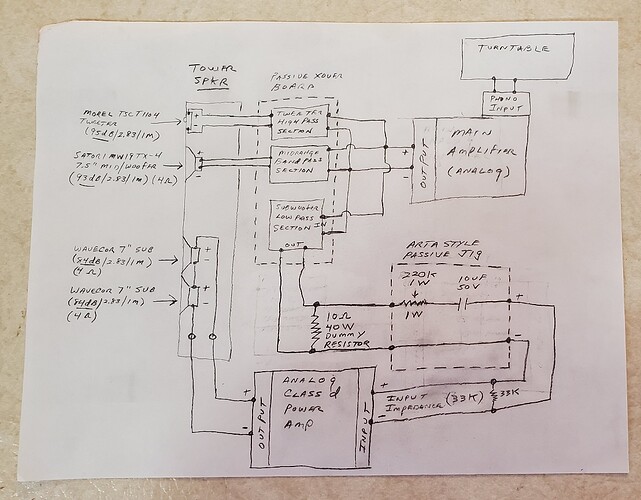 TURNTABLE
PHONO
INPUT
TOWER
SPKR
PASSIVE XOVER
BOARD
MOREL TSCT1104
TWEETER
(95dB/2.83/1M)
+
-
TWEETER
HIGH PASS
SECTION
SATORI MW19TX-4
7.5" MID/WOOFER
(93dB/2.83/1M) (4Ω)
+
-
MIDRANGE
BAND PASS
SECTION
+
-
OUTPUT
MAIN
AMPLIFIER
(ANALOG)
SUBWOOFER
LOW PASS
SECTION IN
OUT
WAVECOR 7" SUB
(84dB/2.83/1M)
(4Ω)
+
-
WAVECOR 7" SUB
(84dB/2.83/1M)
(4Ω)
+
-
ARTA STYLE
PASSIVE JIG
220K
1W
1W
10UF
50V
+
-
10Ω
40W
DUMMY
RESISTOR
+
-
OUTPUT
ANALOG
CLASS d
POWER
AMP
INPUT
+
-
INPUT
IMPEDANCE (33K)
33K